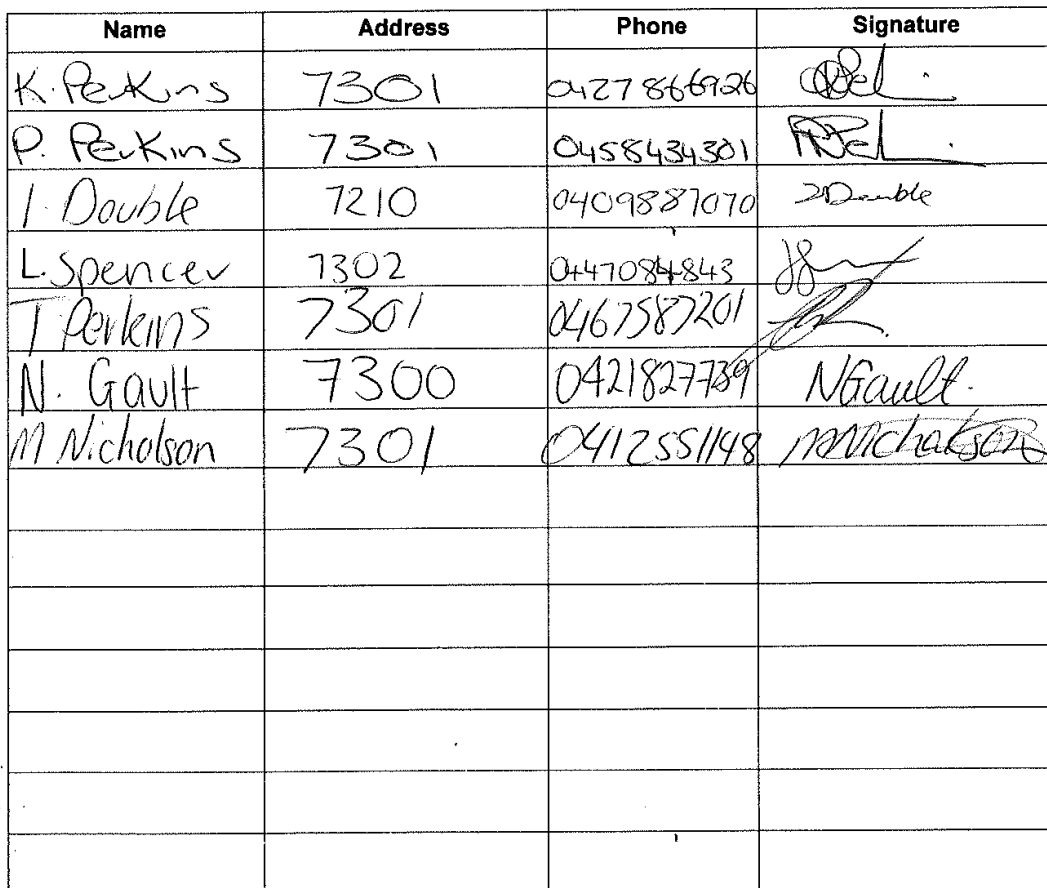 Name Address Phone Signature
K. Perkins 7301 0427866926
P. Perkins 7301 0458434301
I. Double 7210 0409887070 IDouble
L. Spencer 7302 0447084843
T Perkins 7301 0467587201
N. Gault 7300 0421827739 NGault.
M Nicholson 7301 0412551148 MNicholson